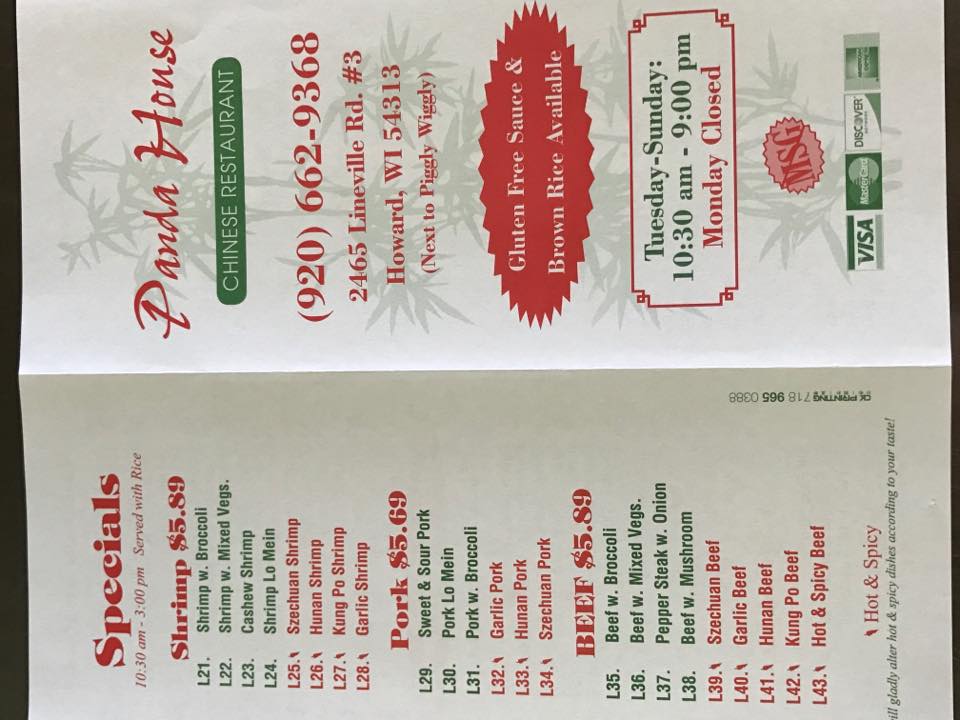 Specials
10:30 am - 3:00 pm Served with Rice
Shrimp $5.89
L21. Shrimp w. Broccoli
L22. Shrimp w. Mixed Vegs.
L23. Cashew Shrimp
L24. Shrimp Lo Mein
L25. Szechuan Shrimp
L26. Hunan Shrimp
L27. Kung Po Shrimp
L28. Garlic Shrimp
Pork $5.69
L29. Sweet & Sour Pork
L30. Pork Lo Mein
L31. Pork w. Broccoli
L32. Garlic Pork
L33. Hunan Pork
L34. Szechuan Pork
BEEF $5.89
L35. Beef w. Broccoli
L36. Beef w. Mixed Vegs.
L37. Pepper Steak w. Onion
L38. Beef w. Mushroom
L39. Szechuan Beef
L40. Garlic Beef
L41. Hunan Beef
L42. Kung Po Beef
L43. Hot & Spicy Beef
Hot & Spicy
ill gladly alter hot & spicy dishes according to your taste!
PRINTING 718 965 0388
Panda House
CHINESE RESTAURANT
(920) 662-9368
2465 Lineville Rd. #3
Howard, WI 54313
(Next to Piggly Wiggly)
Gluten Free Sauce &
Brown Rice Available
Tuesday-Sunday:
10:30 am - 9:00 pm
Monday Closed
MSG
VISA MasterCard DISCOVER